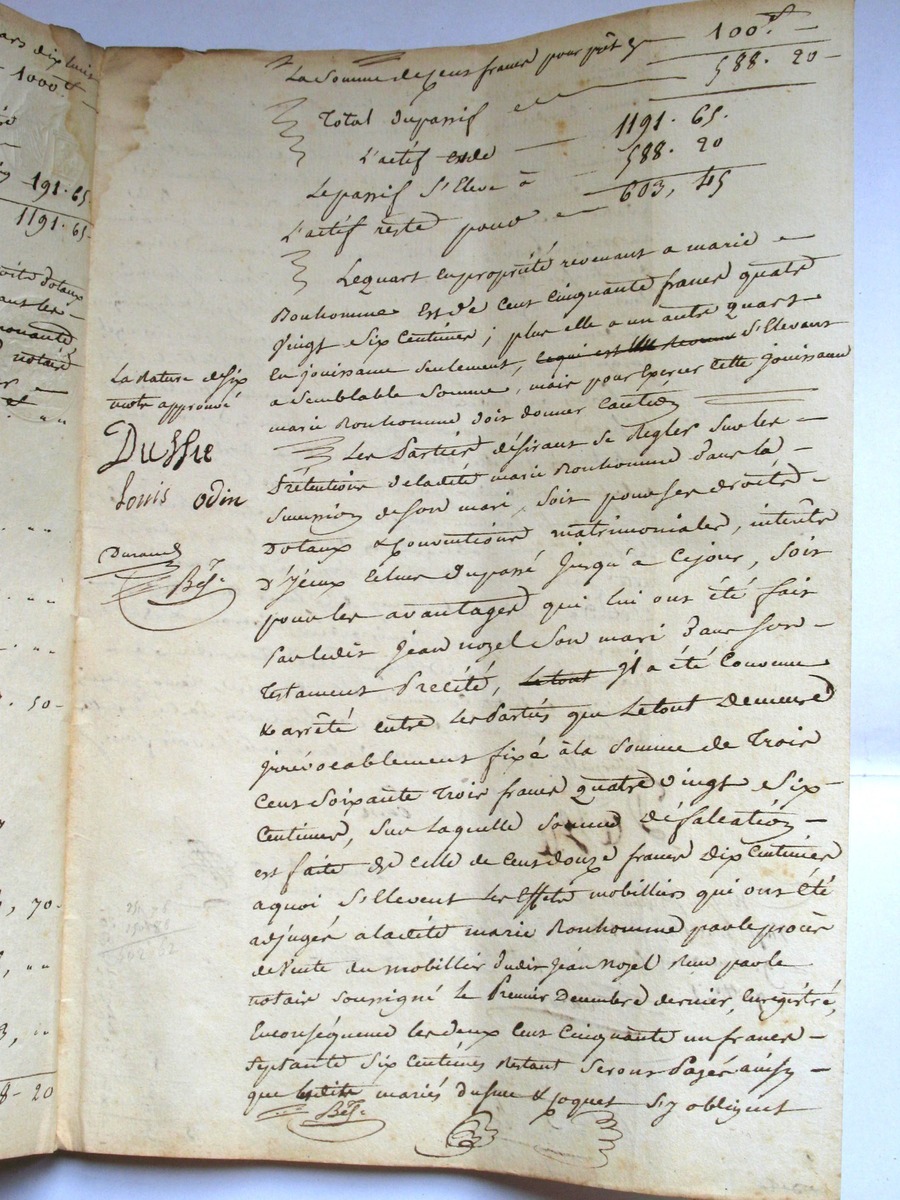 La Somme de cent francs pour prêt cy 100 f —
588. 20 —
Total du passif
L'actif est de — 1191. 65.
Le passif S'Eleve à — 588. 20
L'actif reste pour — 603, 45
Le quart en propriété revenant a marie —
Bonhomme Est de Cent Cinquante francs quatre
Vingt Six Centimes; plus elle a un autre quart
En jouissance Seulement, S'Elevant
a Semblable Somme, mais pour Exercer Cette jouissance
marie Bonhomme doit donner Caution
Les Parties désirant Se Regler Sur les —
Prétentions de ladite marie Bonhomme dans la —
Succession de Son mari, Soit pour Ses droits —
Dotaux & Conventions matrimoniales, interêts
D'yceux Echus du passé jusqu'à Ce jour, Soit
pour les avantages qui lui ont été fait
Par ledit Jean nozel Son mari Dans Son —
Testament Précité, Le tout Il a été Convenu
& arrêté entre les Parties que Le tout Demeure
irrévocablement fixé à la Somme de Trois
Cent Soixante Trois francs quatre Vingt Six —
Centimes, Sur Laquelle Somme Défalcation —
est faite de Celle de Cent douze francs Dix Centimes
a quoi S'Elevent les Effets mobilliers qui ont été
adjugés a ladite marie Bonhomme par le procès
de Vente du mobillier Dudit Jean Nozel Reçu par le
notaire Soussigné le Premier Decembre dernier, Enregistré,
En conséquence les deux Cent Cinquante un francs —
Septante Six Centimes Restant Seront Payés ainsy —
que lesdits mariés Dussuc & joquet S'y obligent
Bés.
La Rature de Six
mots approuvé
Louis odin
Durand
Bés.
1000 f —
191. 65
1191. 65 —
droits dotaux
notaire
. 50 —
, 70 —
8 — 20